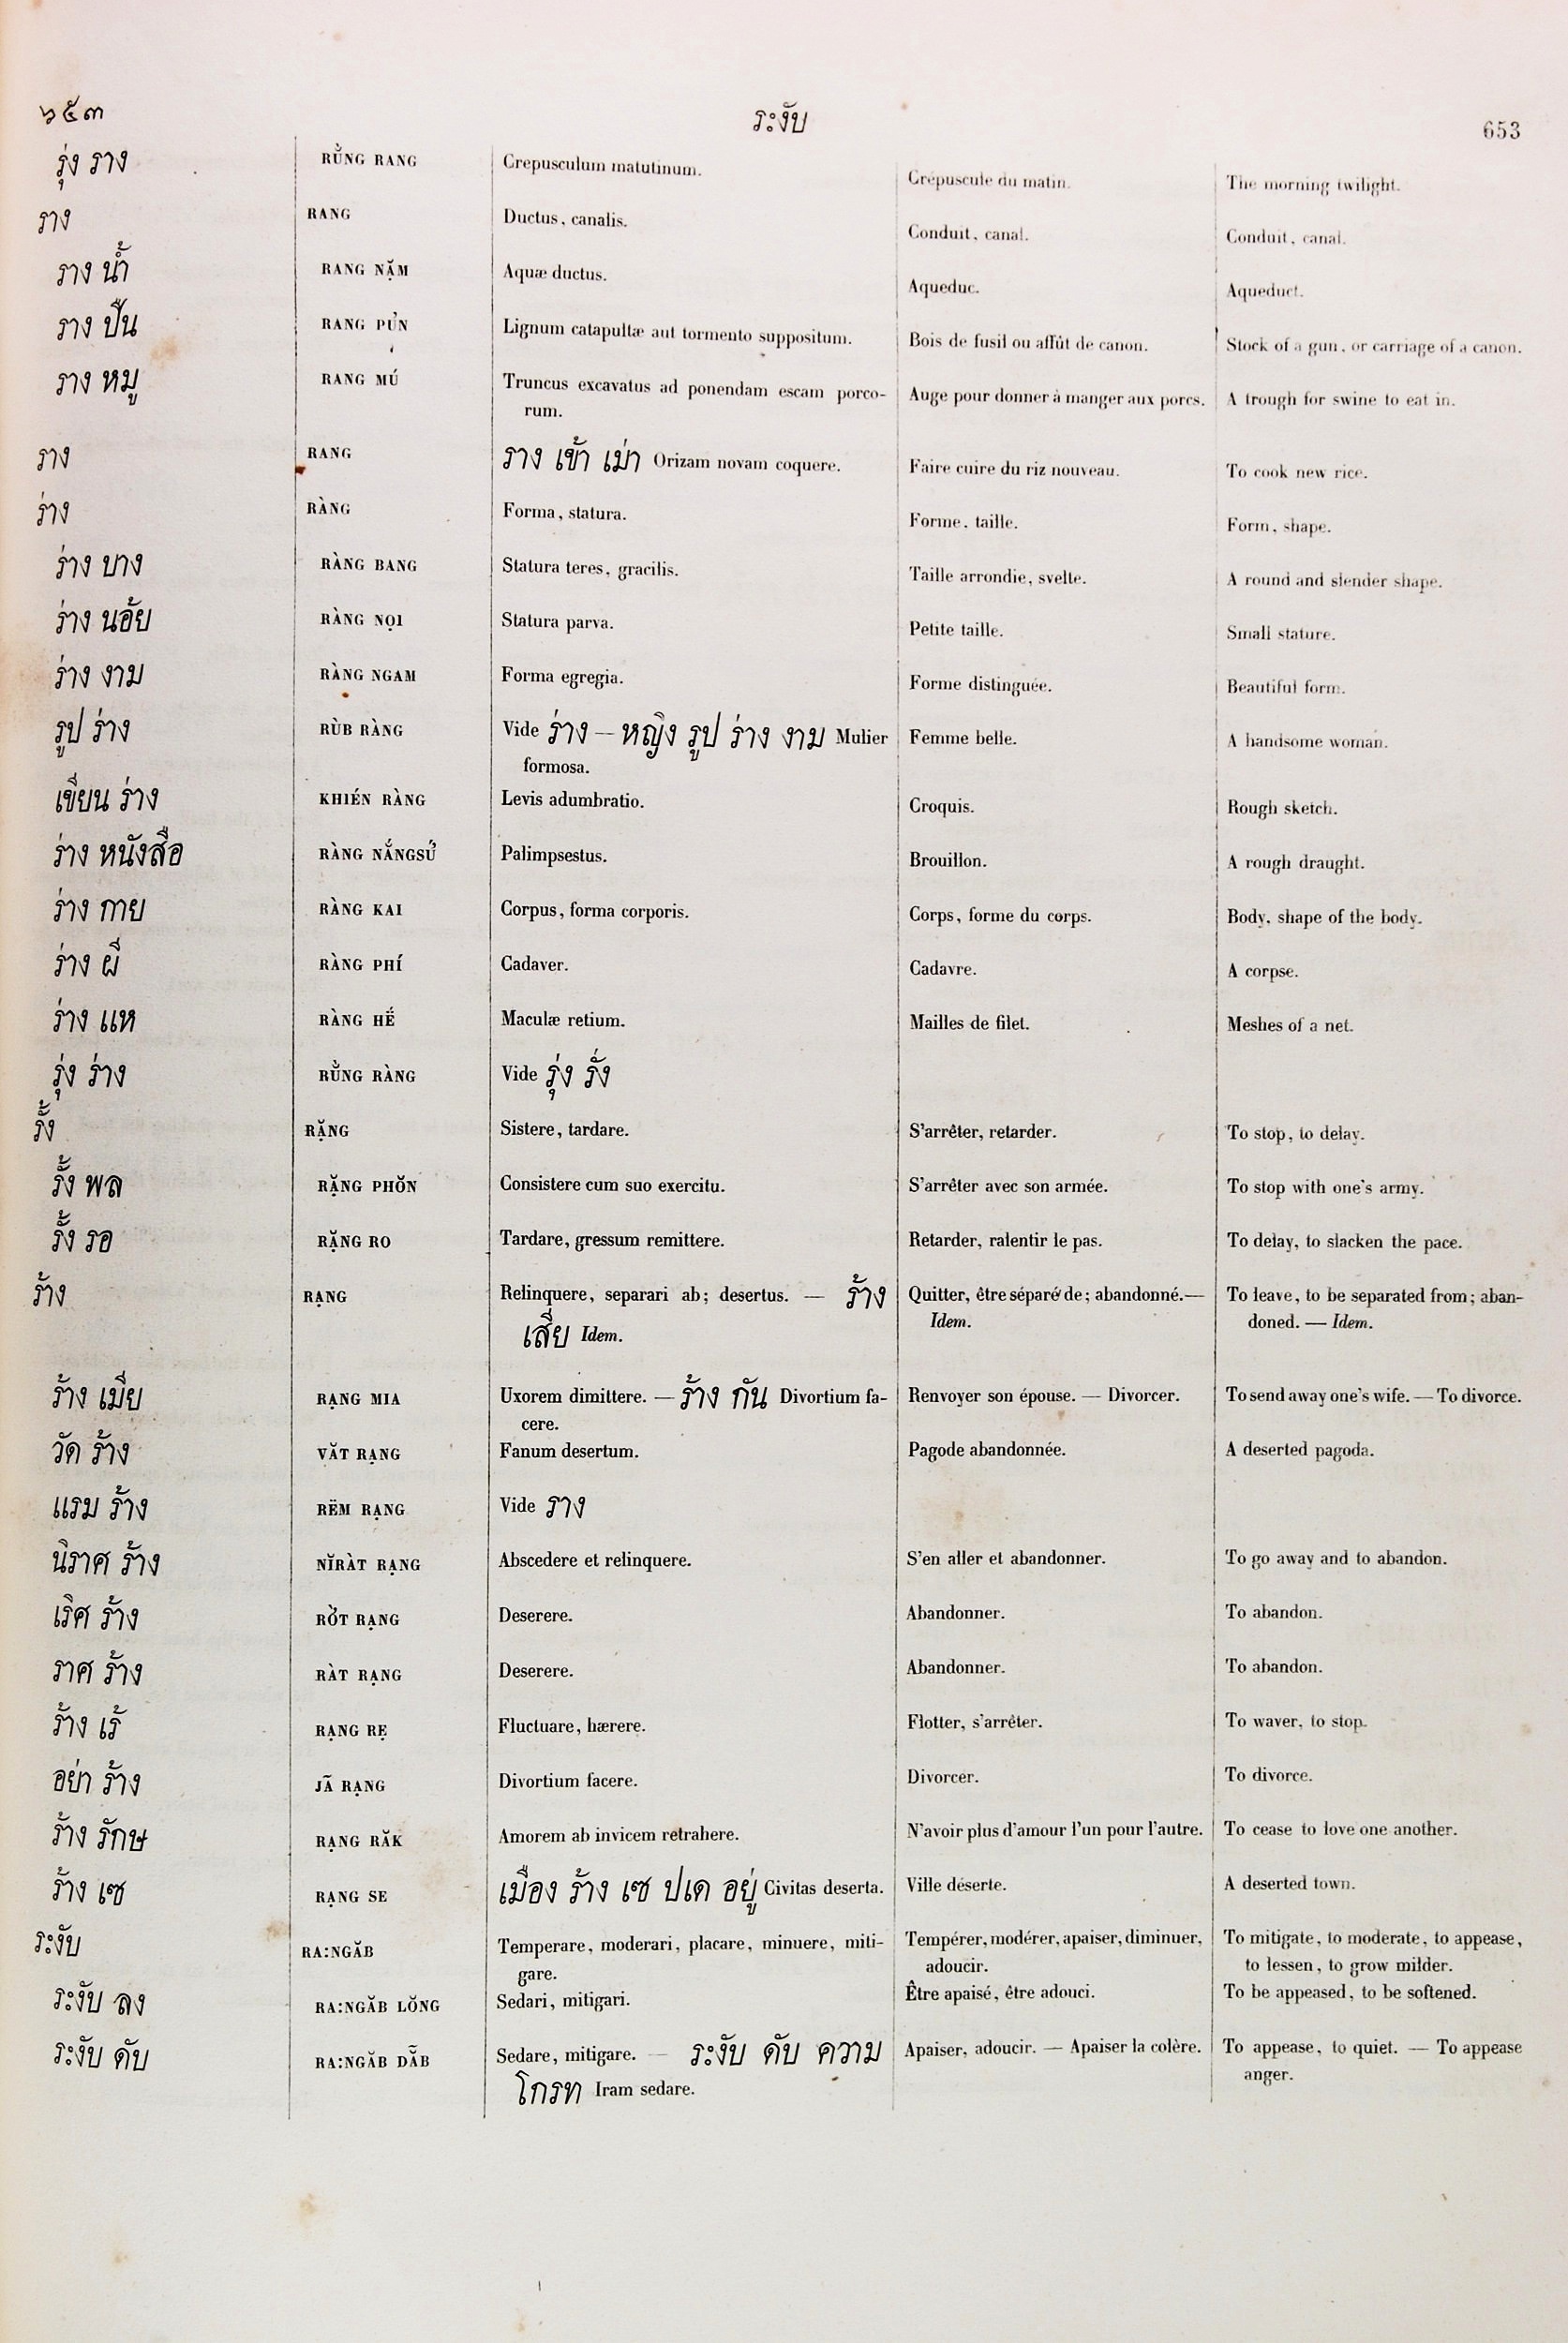 ๖๕๓ ระงับ 653
รุ่ง ราง RŬ̀NG RANG Crepusculum matutinum. Crépuscule du matin. The morning twilight.
ราง RANG Ductus, canalis. Conduit, canal. Conduit, canal.
ราง น้ำ RANG NẶM Aquæ ductus. Aqueduc. Aqueduct.
ราง ปืน RANG PỨN Lignum catapultæ aut tormento suppositum. Bois de fusil ou affût de canon. Stock of a gun, or carriage of a canon.
ราง หมู RANG MÚ Truncus excavatus ad ponendam escam porco- Auge pour donner à manger aux porcs. A trough for swine to eat in.
rum.
ราง RANG ราง เข้า เม่า Orizam novam coquere. Faire cuire du riz nouveau. To cook new rice.
ร่าง RÀNG Forma, statura. Forme, taille. Form, shape.
ร่าง บาง RÀNG BANG Statura teres, gracilis. Taille arrondie, svelte. A round and slender shape.
ร่าง นอ้ย RÀNG NỌI Statura parva. Petite taille. Small stature.
ร่าง งาม RÀNG NGAM Forma egregia. Forme distinguée. Beautiful form.
รูป ร่าง RÙB RÀNG Vide ร่าง — หญิง รูป ร่าง งาม Mulier Femme belle. A handsome woman.
formosa.
เขียน ร่าง KHIÉN RÀNG Levis adumbratio. Croquis. Rough sketch.
ร่าง หนังสือ RÀNG NẮNGSỨ Palimpsestus. Brouillon. A rough draught.
ร่าง กาย RÀNG KAI Corpus, forma corporis. Corps, forme du corps. Body, shape of the body.
ร่าง ผี RÀNG PHÍ Cadaver. Cadavre. A corpse.
ร่าง แห RÀNG HË́ Maculæ retium. Mailles de filet. Meshes of a net.
รุ่ง ร่าง RŬ̀NG RÀNG Vide รุ่ง รั่ง
รั้ง RẶNG Sistere, tardare. S'arrêter, retarder. To stop, to delay.
รั้ง พล RẶNG PHŎN Consistere cum suo exercitu. S'arrêter avec son armée. To stop with one's army.
รั้ง รอ RẶNG RO Tardare, gressum remittere. Retarder, ralentir le pas. To delay, to slacken the pace.
ร้าง RẠNG Relinquere, separari ab; desertus. — ร้าง Quitter, être séparé de; abandonné.— To leave, to be separated from; aban-
เสีย Idem. Idem. doned. — Idem.
ร้าง เมีย RẠNG MIA Uxorem dimittere. — ร้าง กัน Divortium fa- Renvoyer son épouse. — Divorcer. To send away one's wife. — To divorce.
cere.
วัด ร้าง VĂT RẠNG Fanum desertum. Pagode abandonnée. A deserted pagoda.
แรม ร้าง RËM RẠNG Vide ราง
นิราศ ร้าง NĬRÀT RẠNG Abscedere et relinquere. S'en aller et abandonner. To go away and to abandon.
เริศ ร้าง RỜT RẠNG Deserere. Abandonner. To abandon.
ราศ ร้าง RÀT RẠNG Deserere. Abandonner. To abandon.
ร้าง เร้ RẠNG RẸ Fluctuare, hærere. Flotter, s'arrêter. To waver, to stop.
อย่า ร้าง JÃ RẠNG Divortium facere. Divorcer. To divorce.
ร้าง รักษ RẠNG RĂK Amorem ab invicem retrahere. N'avoir plus d'amour l'un pour l'autre. To cease to love one another.
ร้าง เซ RẠNG SE เมือง ร้าง เซ ปเด อยู่ Civitas deserta. Ville déserte. A deserted town.
ระงับ RA:NGĂB Temperare, moderari, placare, minuere, miti- Tempérer, modérer, apaiser, diminuer, To mitigate, to moderate, to appease,
gare. adoucir. to lessen, to grow milder.
ระงับ ลง RA:NGĂB LŎNG Sedari, mitigari. Être apaisé, être adouci. To be appeased, to be softened.
ระงับ ดับ RA:NGĂB DẴB Sedare, mitigare. — ระงับ ดับ ความ Apaiser, adoucir. — Apaiser la colère. To appease, to quiet. — To appease
โกรท Iram sedare. anger.